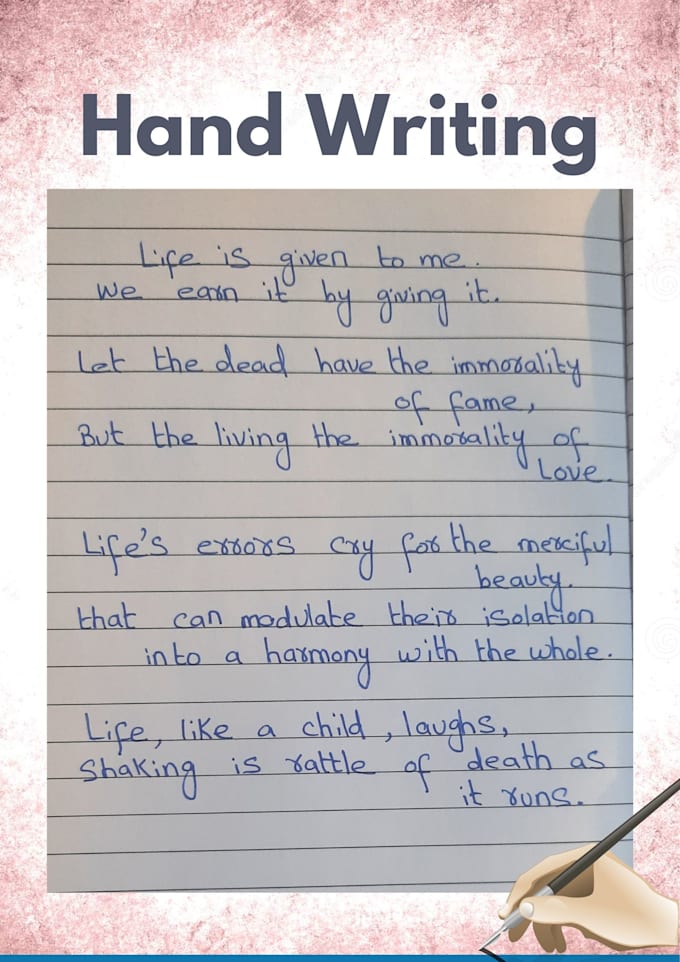 Hand Writing
Life is given to me.
We earn it by giving it.
Let the dead have the immorality
of fame,
But the living the immorality of
Love.
Life's errors cry for the merciful
beauty.
that can modulate their isolation
into a harmony with the whole.
Life, like a child, laughs,
Shaking is rattle of death as
it runs.